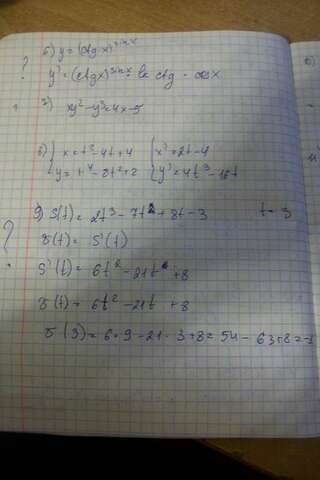 б) y = (ctg x)^sin x
? y' = (ctg x)^sin x · ln ctg · cos x
7) xy² - y³ = 4x - 5
8) { x = t² - 4t + 4 { x' = 2t - 4
{ y = t⁴ - 8t² + 2 { y' = 4t³ - 16t
9) S(t) = 2t³ - 7t² + 8t - 3 t = 3
? v(t) = S'(t)
S'(t) = 6t² - 21t + 8
v(t) = 6t² - 21t + 8
v(3) = 6 · 9 - 21 · 3 + 8 = 54 - 63 + 8 = -1